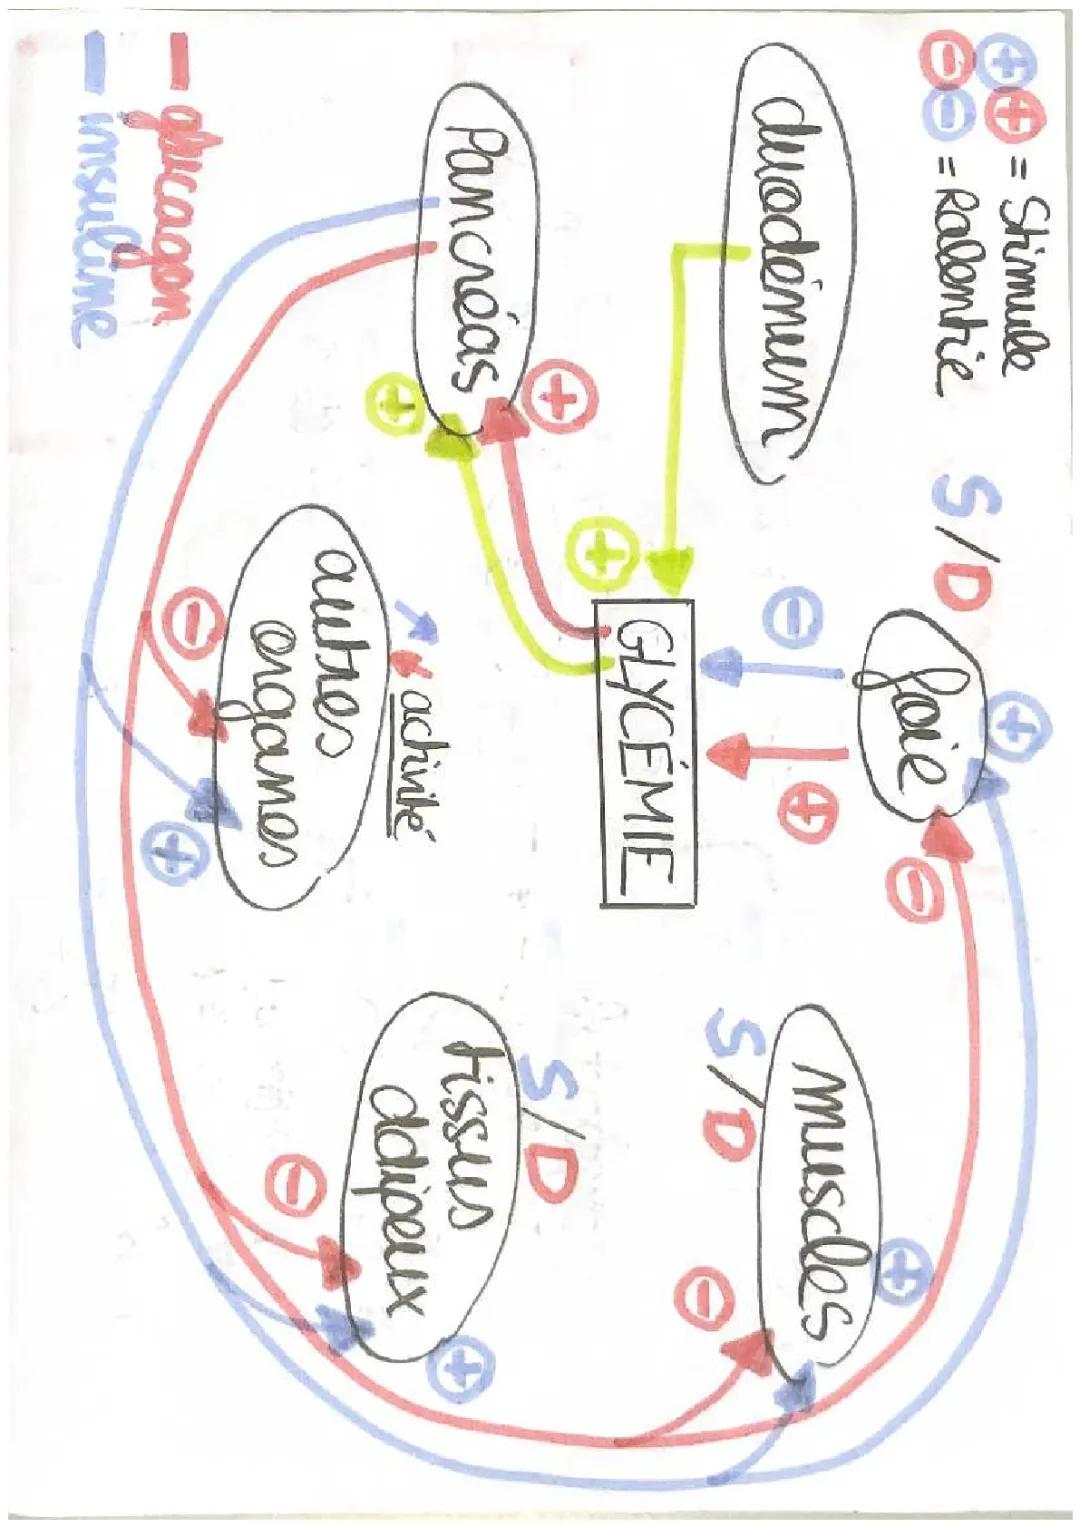 ⊕ ⊕ = Stimule
⊖ ⊖ = Ralentie
S/D
foie
⊕
⊖
duodénum
⊖
⊕
muscles
S/D
⊕
⊖
GLYCÉMIE
⊕
Pancréas
⊕
⊕
activité
autres
organes
⊖
⊕
S/D
tissus
adipeux
⊖
⊕
glucagon
insuline